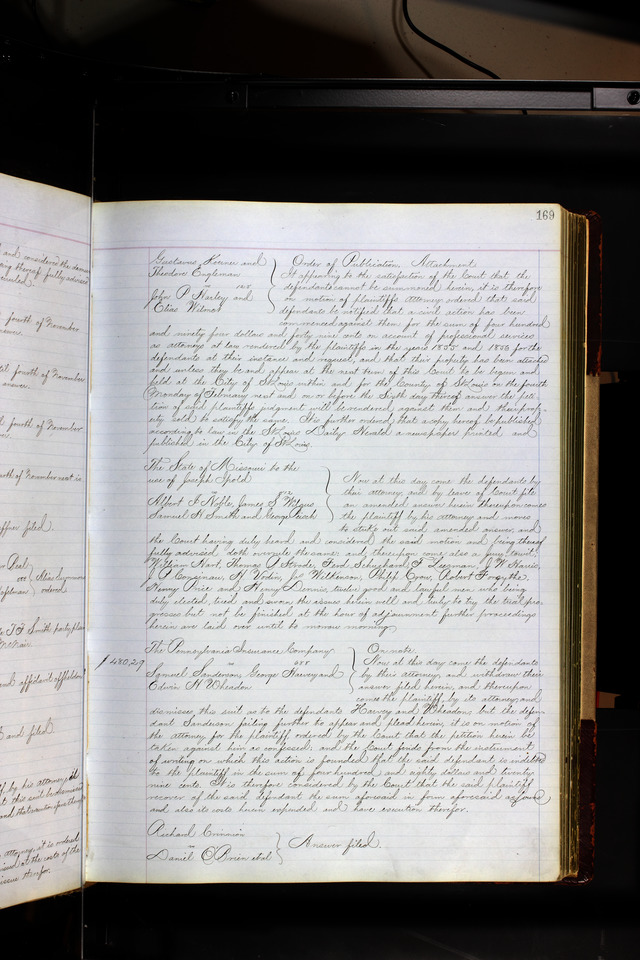 169
Gustavus Koerner and
Theodore Engleman
vs
John P Harley and
Elias Wilmot
Order of Publication, Attachment.
It appearing to the satisfaction of the Court that the
defendants cannot be summoned herein, it is therefore
on motion of plaintiffs attorney ordered that said
defendants be notified that a civil action has been
commenced against them for the sum of four hundred
and ninety four dollars and forty nine cents on account of professional services
as attorneys at law rendered by the plaintiffs in the years 1855 and 1856 for the
defendants at their instance and request, and that their property has been attached
and unless they be and appear at the next term of this Court to be begun and
held at the City of St Louis within and for the County of St Louis on the fourth
Monday of February next and on or before the Sixth day thereof answer the peti-
tion of said plaintiffs judgment will be rendered against them and their prop-
erty sold to satisfy the same. It is further ordered that a copy hereof be published
according to law in the St Louis Daily Herald a newspaper printed and
published in the City of St Louis.
The State of Missouri to the
use of Joseph Spold
vs
Albert I Noble, James S
Samuel H Smith and George
Now at this day come the defendants by
their attorney, and by leave of Court file
an amended answer herein thereupon comes
the plaintiff by his attorney and moves
to strike out said amended answer, and
the Court having duly heard and considered the said motion and being thereof
fully advised doth overrule the same, and thereupon come also a jury, towit:
William Hart, Thomas P Strode, Ferd Schughard, F Leesman, J W Norris,
J P Consinaw, H Yodin, Jos Wilkinson, Philip Crow, Robert Forsythe,
Henry Price and Henry Dennis, twelve good and lawful men who being
duly elected, tried and sworn the issues herein well and truly to try the trial pro-
gresses but not be finished at the hour of adjournment further proceedings
herein are laid over until to morrow morning.
$480,29
The Pennsylvania Insurance Company
vs
Samuel Sanderson, George Harvey and
Edwin H Wheadon
On note.
Now at this day come the defendants
by their attorney, and withdraw their
answer filed herein, and thereupon
comes the plaintiff, by its attorney, and
dismisses this suit as to the defendants Harvey and Wheadon, but the defen-
dant Sanderson failing further to appear and plead herein, it is on motion of
the attorney for the plaintiff ordered by the Court that the petition herein be
taken against him as confessed: and the Court finds from the instrument
of writing on which this action is founded that the said defendant is indebted
to the plaintiff in the sum of four hundred and eighty dollars and twenty
nine cents. It is therefore considered by the Court that the said plaintiff
recover of the said defendant the sum aforesaid in form aforesaid
and also its costs herein expended and have execution therefor.
Richard
vs
Daniel O'Brien et al
Answer filed.